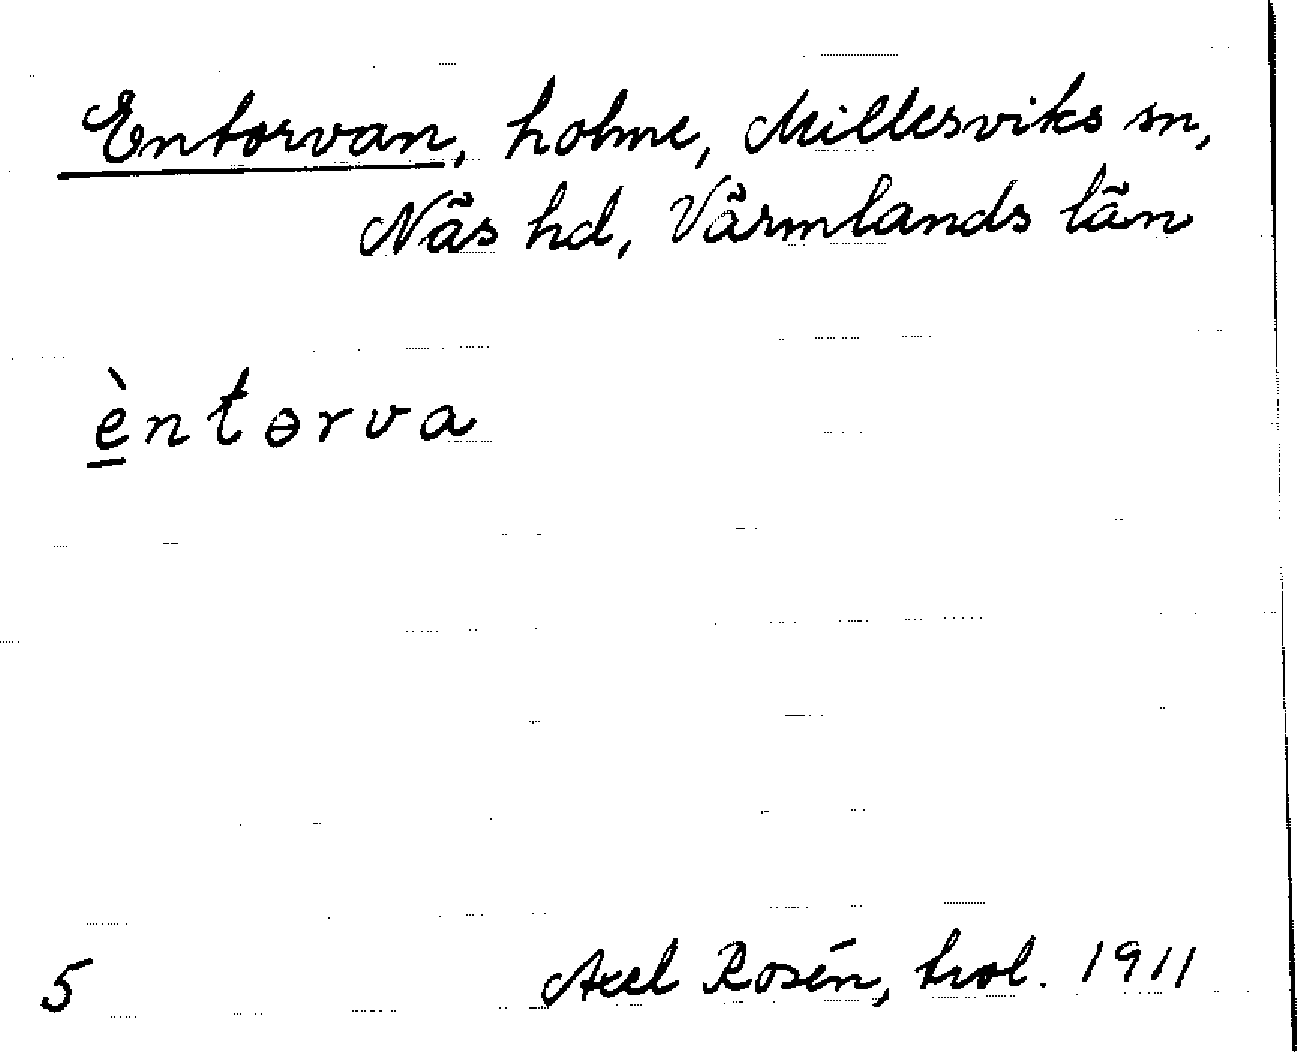 Entorvan, holme, Millesviks sn,
Näs hd, Värmlands län
èntərva
5 Axel Rosén, trol. 1911